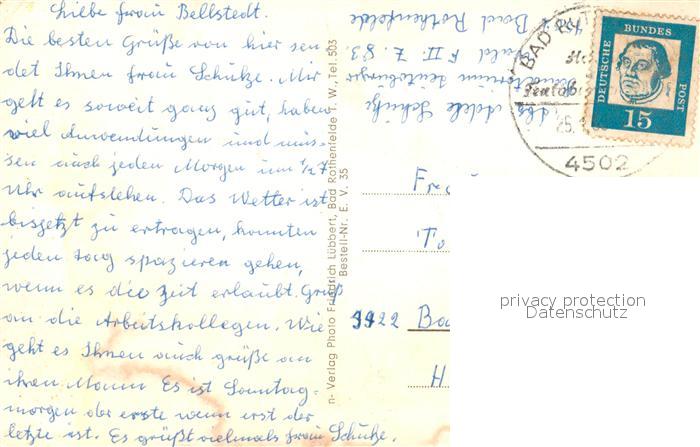 Liebe Frau Bellstedt.
Die besten Grüße von hier sen
det Ihnen Frau Schütze. Mir
geht es soweit ganz gut, haben
viel Anwendungen und müs-
sen auch jeden Morgen um 1/2 7
Uhr aufstehen. Das Wetter ist
bisjetzt zu ertragen, konnten
jeden Tag spazieren gehen,
wenn es die Zeit erlaubt. Gruß
an die Arbeitskollegen. Wie
geht es Ihnen auch grüße an
ihren Mann Es ist Sonntag-
morgen der erste wenn erst der
letzte ist. Es grüßt vielmals Frau Schütze.
n- Verlag Photo Friedrich Lübbert, Bad Rothenfelde T. W. Tel. 503
Bestell-Nr. E. V. 35
Abs. Adele Schütze
Sanatorium Teutoburger
Wald F II. Z. 83.
4502 Bad Rothenfelde
BAD
4502
DEUTSCHE BUNDES POST
15
3422 Ba
H
privacy protection
Datenschutz